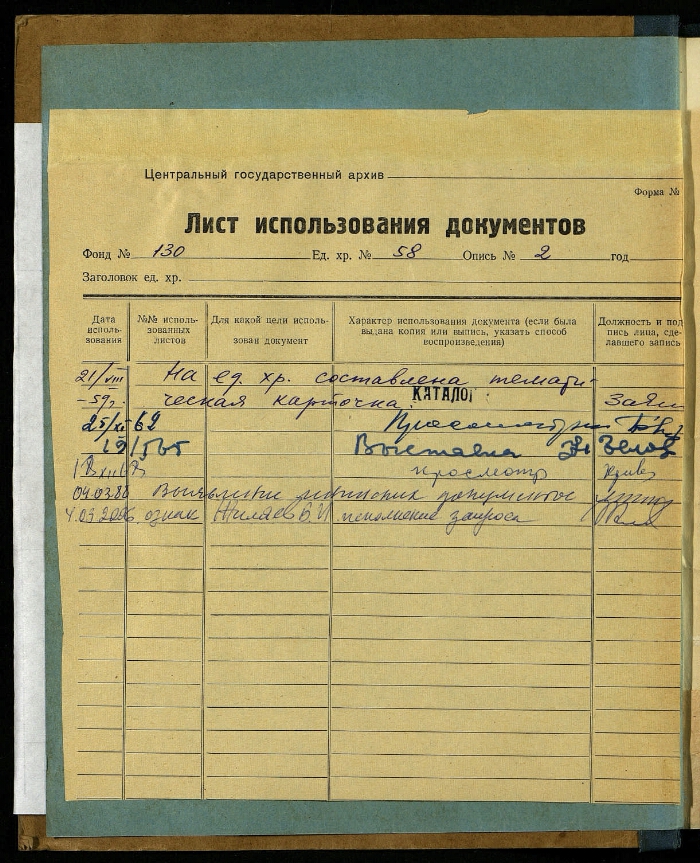 Центральный государственный архив
Форма №
Лист использования документов
Фонд № 130 Ед. хр. № 58 Опись № 2 год
Заголовок ед. хр.
Дата исполь-зования
№№ исполь-зованных листов
Для какой цели исполь-зован документ
Характер использования документа (если была выдана копия или выпись, указать способ воспроизведения)
Должность и под пись лица, сде-лавшего запись
21/VIII На ед. хр. составлена темати-
-59г. ческая карточка. КАТАЛОГ
25/XI 62
Выставка
просмотр
04.03.80 Выявление ленинских документов
4.03.2006 ознак Жиляев В.И исполнение запроса